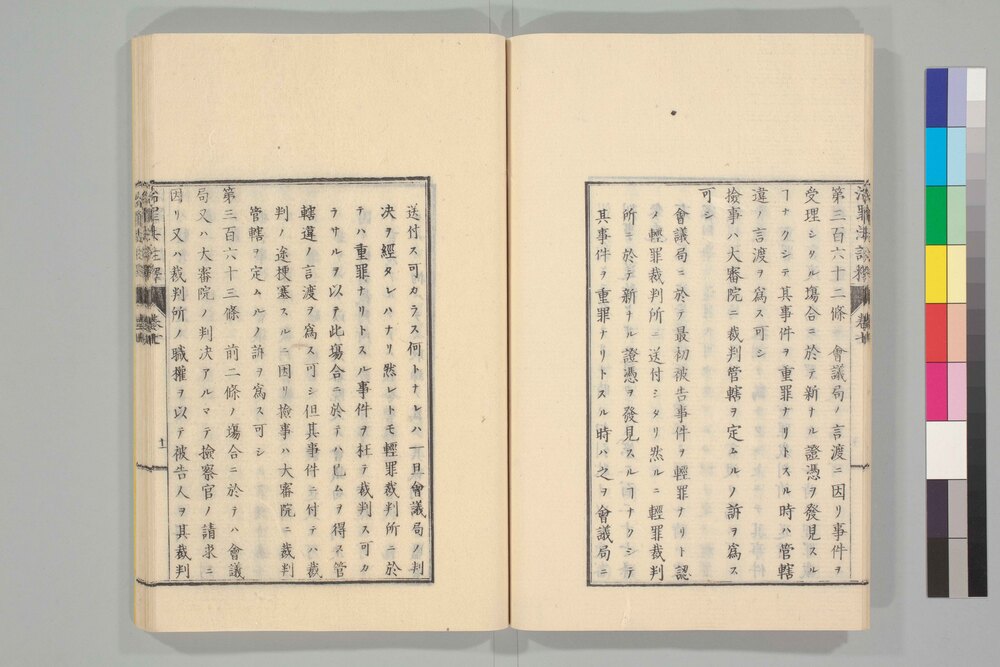 第三百六十二條　會議局ノ言渡ニ因リ事件ヲ
受理シタル塲合ニ於テ新ナル證憑ヲ發見スル
ヿナクシテ其事件ヲ重罪ナリトスル時ハ管轄
違ノ言渡ヲ爲ス可シ
撿事ハ大審院ニ裁判管轄ヲ定ムルノ訴ヲ爲ス
可シ
會議局ニ於テ最初被告事件ヲ輕罪ナリト認
メ輕罪裁判所ニ送付シタリ然ルニ輕罪裁判
所ニ於テ新ナル證憑ヲ發見スルヿナクシテ
其事件ヲ重罪ナリトスル時ハ之ヲ會議局ニ
送付ス可カラス何トナレハ一旦會議局ノ判
决ヲ經タレハナリ然レトモ輕罪裁判所ニ於
テハ重罪ナリトスル事件ヲ枉テ裁判ス可カ
ラサルヲ以テ此塲合ニ於テハ已ムヲ得ス管
轄違ノ言渡ヲ爲ス可シ但其事件ニ付テハ裁
判ノ途梗塞スルニ因リ撿事ハ大審院ニ裁判
管轄ヲ定ムルノ訴ヲ爲ス可シ
第三百六十三條　前二條ノ塲合ニ於テハ會議
局又ハ大審院ノ判决アルマテ撿察官ノ請求ニ
因リ又ハ裁判所ノ職權ヲ以テ被告人ヲ其裁判